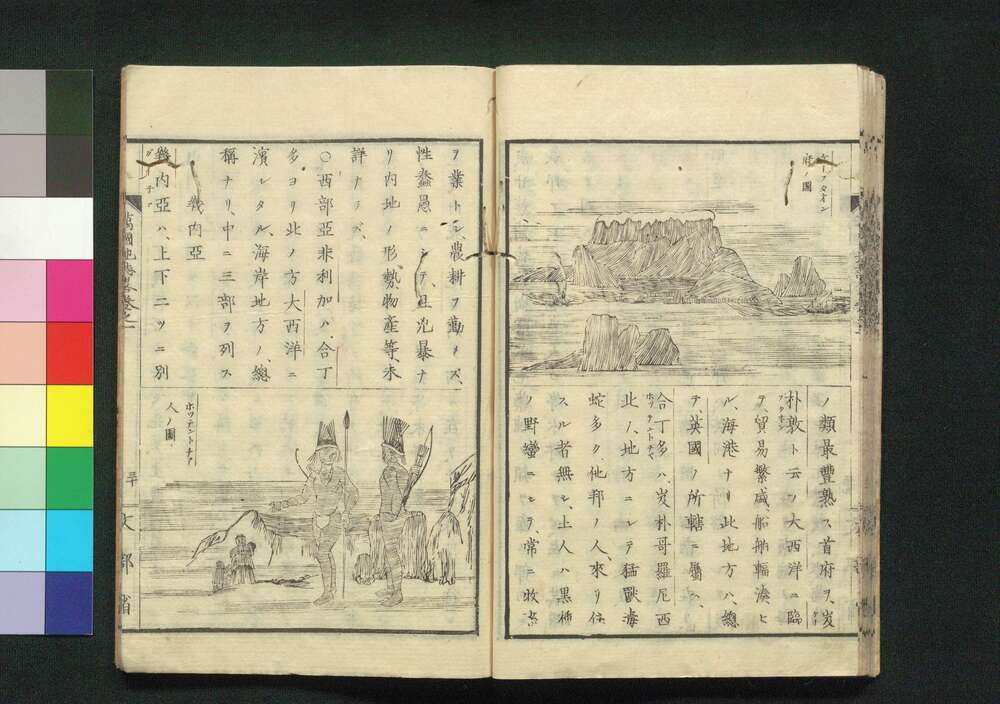 ケープタオン
府ノ圖
ノ類最豐熟ス首府ヲ岌
朴敦ト云ツ大西洋ニ臨
ヲ貿易繁盛船舶輻湊ヒ
ル海港ナリ此地方ハ總
テ英國ノ所轄ニ屬ヘ
合丁多ハ岌朴哥羅尼西
北ノ地方ニシテ猛獸毒
蛇多ク他邦ノ人來リ住
スル者無シ土人ハ黒種
ノ野蠻ニシテ常ニ牧畜
ヲ業トシ農耕ヲ勤メズ
性蠢愚ニシテ且兇暴ナ
リ内地ノ形勢物産等未
詳ナラズ
○西部亞非利加ハ合丁
多ヨリ此ノ方大西洋ニ
濱レタル海岸地方ノ總
稱ナリ中ニ三部ヲ列ス
幾内亞
幾内亞ハ上下二ツニ別
ホッテントチア
人ノ圖
文部省